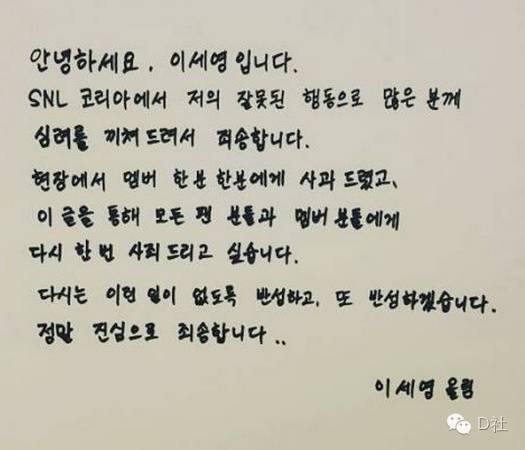 안녕하세요. 이세영입니다.
SNL 코리아에서 저의 잘못된 행동으로 많은 분께
심려를 끼쳐 드려서 죄송합니다.
현장에서 멤버 한분 한분에게 사과 드렸고,
이 글을 통해 모든 팬 분들과 멤버 분들에게
다시 한 번 사죄 드리고 싶습니다.
다시는 이런 일이 없도록 반성하고, 또 반성하겠습니다.
정말 진심으로 죄송합니다..
이세영 올림
D社